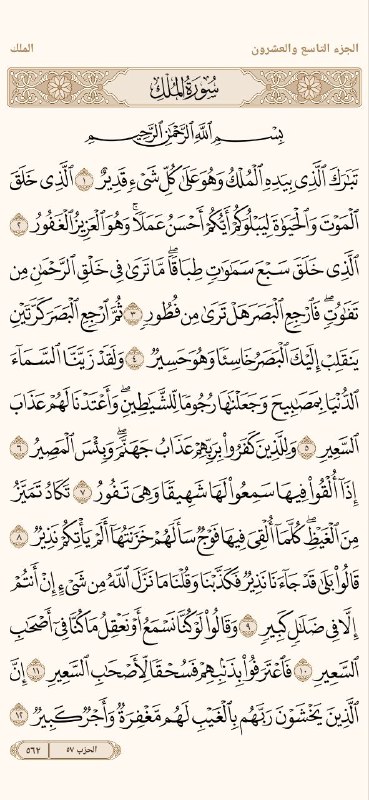 الجزء التاسع والعشرون
الملك
سُورَةُ الْمُلْكِ
بِسْمِ اللَّهِ الرَّحْمَٰنِ الرَّحِيمِ
تَبَٰرَكَ ٱلَّذِى بِيَدِهِ ٱلْمُلْكُ وَهُوَ عَلَىٰ كُلِّ شَىْءٍ قَدِيرٌ ١ ٱلَّذِى خَلَقَ
ٱلْمَوْتَ وَٱلْحَيَوٰةَ لِيَبْلُوَكُمْ أَيُّكُمْ أَحْسَنُ عَمَلًا ۚ وَهُوَ ٱلْعَزِيزُ ٱلْغَفُورُ ٢
ٱلَّذِى خَلَقَ سَبْعَ سَمَٰوَٰتٍ طِبَاقًا ۖ مَّا تَرَىٰ فِى خَلْقِ ٱلرَّحْمَٰنِ مِن
تَفَٰوُتٍ ۖ فَٱرْجِعِ ٱلْبَصَرَ هَلْ تَرَىٰ مِن فُطُورٍ ٣ ثُمَّ ٱرْجِعِ ٱلْبَصَرَ كَرَّتَيْنِ
يَنقَلِبْ إِلَيْكَ ٱلْبَصَرُ خَاسِئًا وَهُوَ حَسِيرٌ ٤ وَلَقَدْ زَيَّنَّا ٱلسَّمَآءَ
ٱلدُّنْيَا بِمَصَٰبِيحَ وَجَعَلْنَٰهَا رُجُومًا لِّلشَّيَٰطِينِ ۖ وَأَعْتَدْنَا لَهُمْ عَذَابَ
ٱلسَّعِيرِ ٥ وَلِلَّذِينَ كَفَرُوا۟ بِرَبِّهِمْ عَذَابُ جَهَنَّمَ ۖ وَبِئْسَ ٱلْمَصِيرُ ٦
إِذَآ أُلْقُوا۟ فِيهَا سَمِعُوا۟ لَهَا شَهِيقًا وَهِىَ تَفُورُ ٧ تَكَادُ تَمَيَّزُ
مِنَ ٱلْغَيْظِ ۖ كُلَّمَآ أُلْقِىَ فِيهَا فَوْجٌ سَأَلَهُمْ خَزَنَتُهَآ أَلَمْ يَأْتِكُمْ نَذِيرٌ ٨
قَالُوا۟ بَلَىٰ قَدْ جَآءَنَا نَذِيرٌ فَكَذَّبْنَا وَقُلْنَا مَا نَزَّلَ ٱللَّهُ مِن شَىْءٍ إِنْ أَنتُمْ
إِلَّا فِى ضَلَٰلٍ كَبِيرٍ ٩ وَقَالُوا۟ لَوْ كُنَّا نَسْمَعُ أَوْ نَعْقِلُ مَا كُنَّا فِىٓ أَصْحَٰبِ
ٱلسَّعِيرِ ١٠ فَٱعْتَرَفُوا۟ بِذَنۢبِهِمْ فَسُحْقًا لِّأَصْحَٰبِ ٱلسَّعِيرِ ١١ إِنَّ
ٱلَّذِينَ يَخْشَوْنَ رَبَّهُم بِٱلْغَيْبِ لَهُم مَّغْفِرَةٌ وَأَجْرٌ كَبِيرٌ ١٢
الحزب ٥٧
٥٦٢